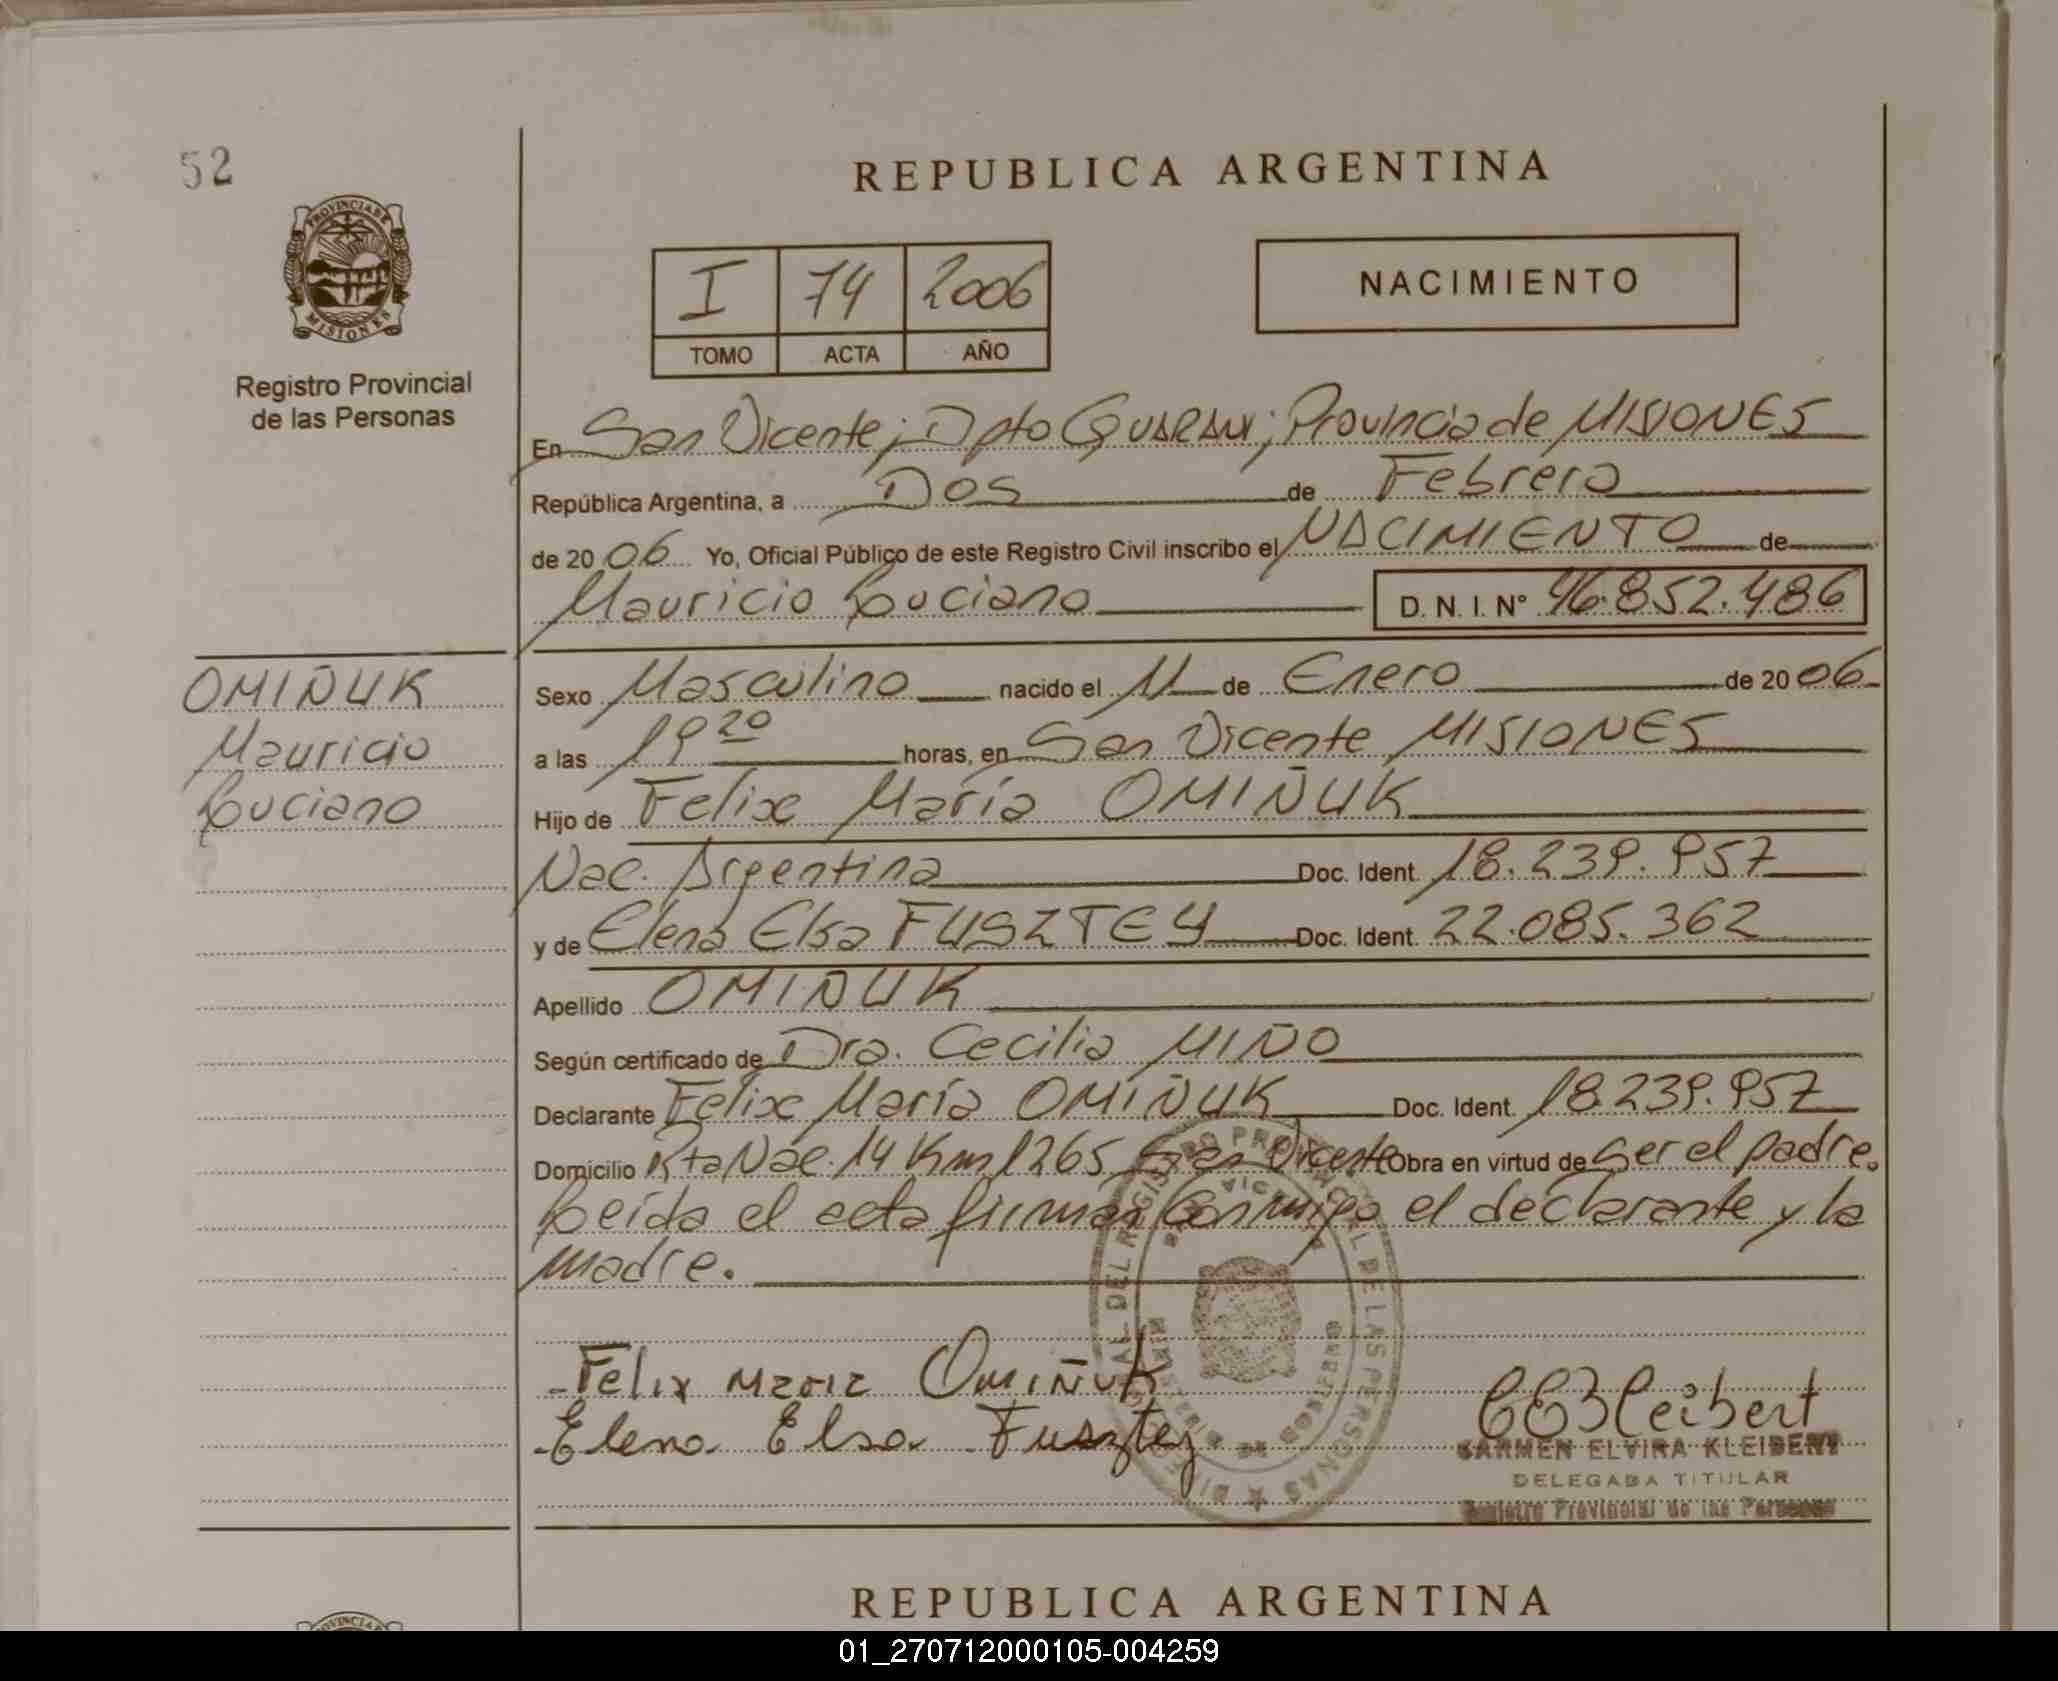 52
PROVINCIA DE
MISIONES
Registro Provincial
de las Personas
REPUBLICA ARGENTINA
I 74 2006
TOMO ACTA AÑO
NACIMIENTO
En San Vicente; Dpto Guarani; Provincia de MISIONES
República Argentina, a Dos de Febrero
de 2006 Yo, Oficial Público de este Registro Civil inscribo el NACIMIENTO de
Mauricio Luciano D. N. I. N° 46.852.486
OMIÑUK
Mauricio
Luciano
Sexo Masculino nacido el 11 de Enero de 2006
a las 19 20 horas, en San Vicente MISIONES
Hijo de Felix María OMIÑUK
Nac. Argentina Doc. Ident. 18.239.957
y de Elena Elsa FUSZTEY Doc. Ident. 22.085.362
Apellido OMIÑUK
Según certificado de Dra. Cecilia MIÑO
Declarante Felix María OMIÑUK Doc. Ident. 18.239.957
Domicilio Rta Nac. 14 Km 1265 San Vicente Obra en virtud de ser el padre.
Leída el acta firman conmigo el declarante y la
madre.
Felix Maria Omiñuk
Elena Elsa Fusztey
CEKleibert
CARMEN ELVIRA KLEIBERT
DELEGADA TITULAR
Registro Provincial de las Personas
REPUBLICA ARGENTINA
01_270712000105-004259